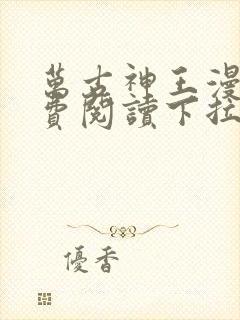 萬古神王漫
費閱讀下拉
優香